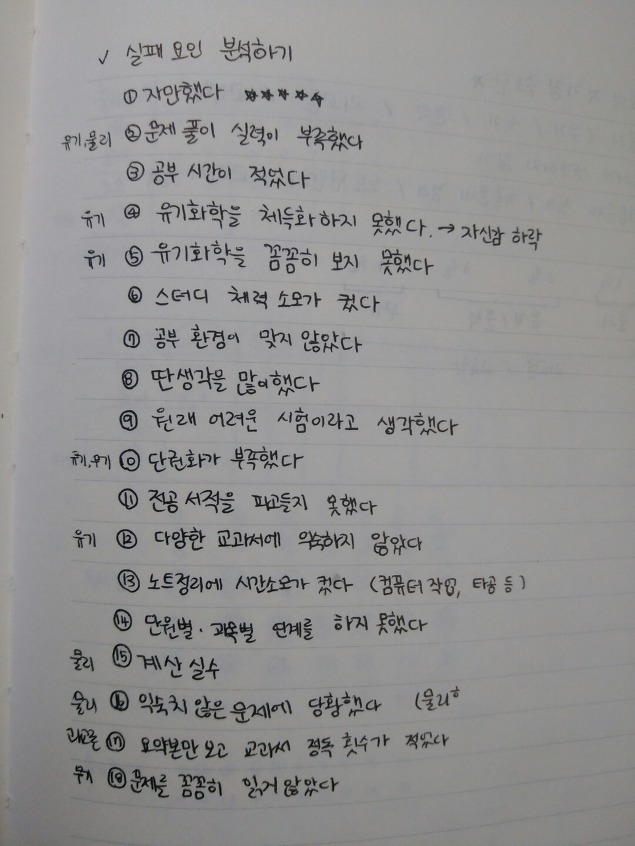 ✓ 실패 요인 분석하기
① 자만했다 ★★★★★
유기,물리 ② 문제 풀이 실력이 부족했다
③ 공부 시간이 적었다
유기 ④ 유기화학을 체득화하지 못했다. → 자신감 하락
유기 ⑤ 유기화학을 꼼꼼히 보지 못했다
⑥ 스터디 체력 소모가 컸다
⑦ 공부 환경이 맞지 않았다
⑧ 딴생각을 많이했다
⑨ 원래 어려운 시험이라고 생각했다
유기,무기 ⑩ 단권화가 부족했다
⑪ 전공 서적을 파고들지 못했다
유기 ⑫ 다양한 교과서에 익숙하지 않았다
⑬ 노트정리에 시간소모가 컸다 (컴퓨터 작업, 타공 등)
⑭ 단원별·과목별 연계를 하지 못했다
물리 ⑮ 계산 실수
물리 ⑯ 익숙치 않은 문제에 당황했다 (물리
교론 ⑰ 요약본만 보고 교과서 정독 횟수가 적었다
무기 ⑱ 문제를 꼼꼼히 읽지 않았다